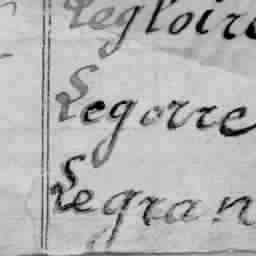 Legloire
Legorre
Legran